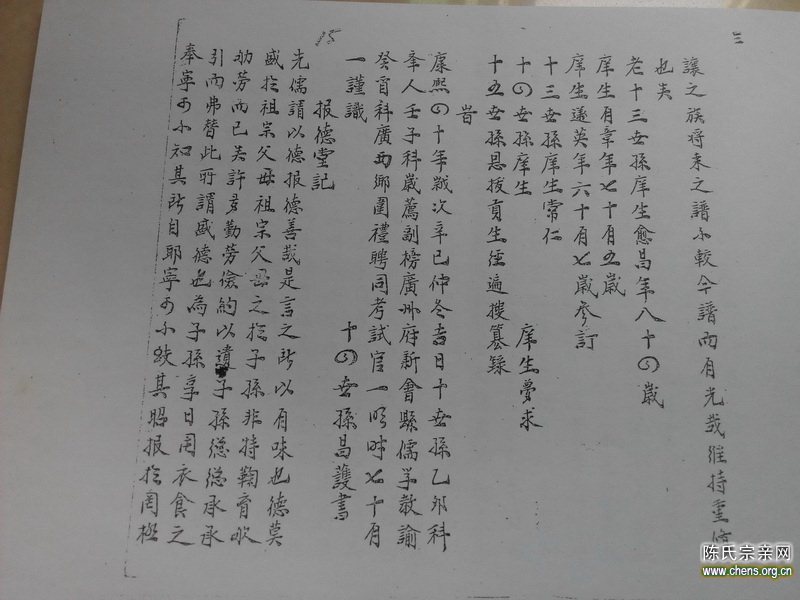 三
讓之族將来之譜不較今譜而有光哉維持重修
也夫
老十三世孫庠生愈昌年八十四歲
庠生有章年七十有五歲
庠生遂英年六十有七歲参訂
十三世孫庠生常仁
十四世孫庠生 庠生夢求
十五世孫恩拔貢生 遍搜纂錄
旹
康熙四十年歲次辛巳仲冬吉日十世孫乙夘科
舉人壬子科歲薦副榜廣州府新會縣儒学教諭
癸酉科廣西鄉圍禮聘同考試官一明時七十有
一謹識
十四世孫昌護書
15
报德堂記
先儒謂以德报德善哉是言之所以有味也德莫
盛扵祖宗父母祖宗父母之扵子孫非特鞠育
劬劳而已矣許多勤劳儉約以遺子孫偲偲承承
引而弗替此所謂盛德也為子孫享日用衣食之
奉寧可不知其所自耶寧可不 其昭报扵罔極
陈氏宗亲网
www.chens.org.cn